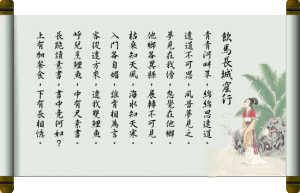 飲馬長城窟行
青青河畔草，綿綿思遠道。
遠道不可思，夙昔夢見之。
夢見在我傍，忽覺在他鄉。
他鄉各異縣，展轉不可見。
枯桑知天風，海水知天寒。
入門各自媚，誰肯相為言。
客從遠方來，遺我雙鯉魚。
呼兒烹鯉魚，中有尺素書。
長跪讀素書，書中竟何如？
上有加餐食，下有長相憶。